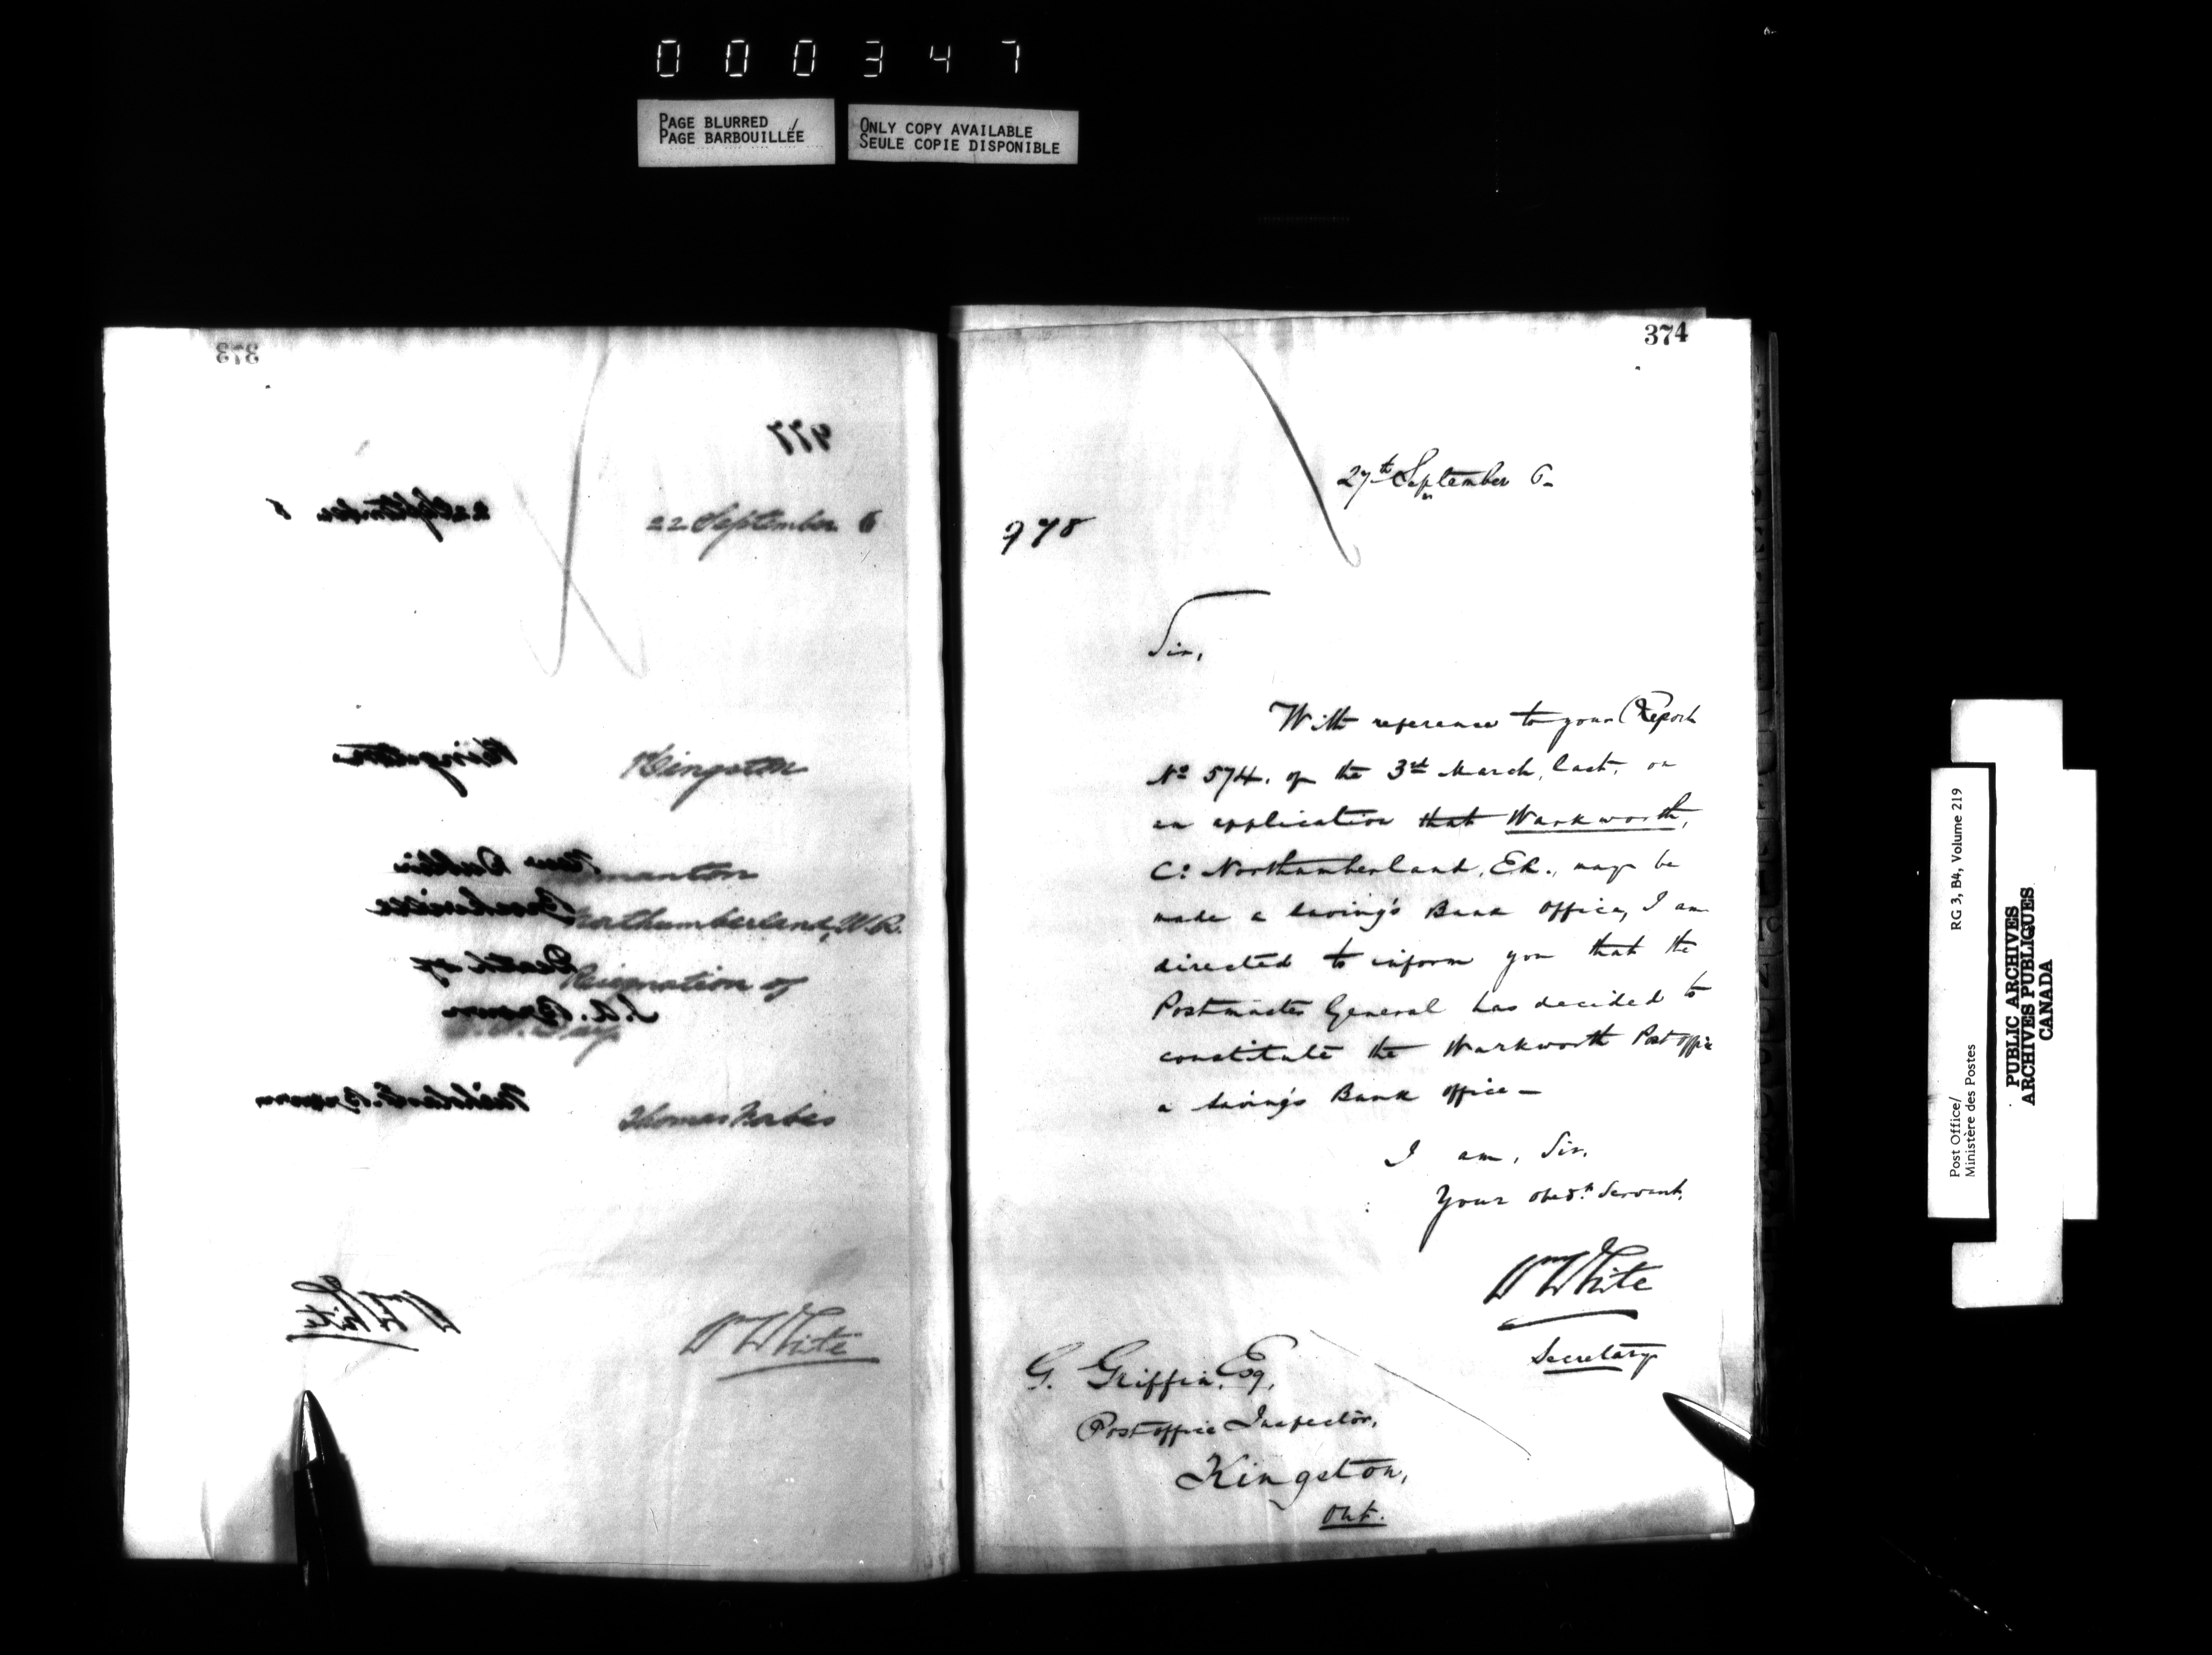 000347
PAGE BLURRED
PAGE BARBOUILLÉE
ONLY COPY AVAILABLE
SEULE COPIE DISPONIBLE
373
977
22 September 6
22 September 6
Kingston
Kingston
New Dublin
Brockville
Northumberland, W.R.
Death of
Resignation of
J. A. Brown
Nicholas E. Brown
Thomas Forbes
Wm White
Wm White
374
27th September 6-
978
Sir,
With reference to your Report
No 574, of the 3rd March, last, on
an application that Warkworth,
Co Northumberland, E.R., may be
made a Saving's Bank office, I am
directed to inform you that the
Postmaster General has decided to
constitute the Warkworth Post office
a Saving's Bank office -
I am, Sir,
Your obedt Servant,
Wm White
Secretary
G. Griffin, Esq,
Post office Inspector,
Kingston,
Ont.
Post Office/
Ministère des Postes
RG 3, B4, Volume 219
PUBLIC ARCHIVES
ARCHIVES PUBLIQUES
CANADA